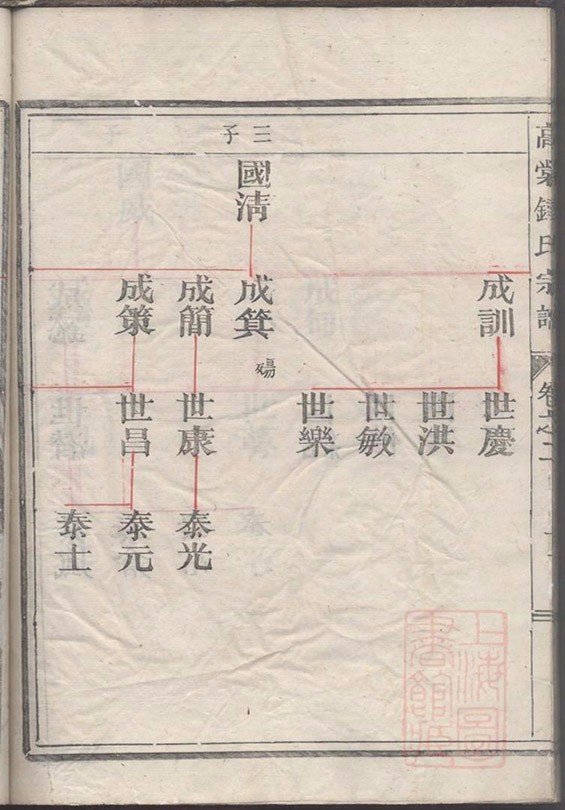 三子
國清
成訓
成箕
殤
成簡
成策
世慶
世洪
世敏
世樂
世康
世昌
泰光
泰元
泰士
氏宗譜
卷之二
上海圖書館藏